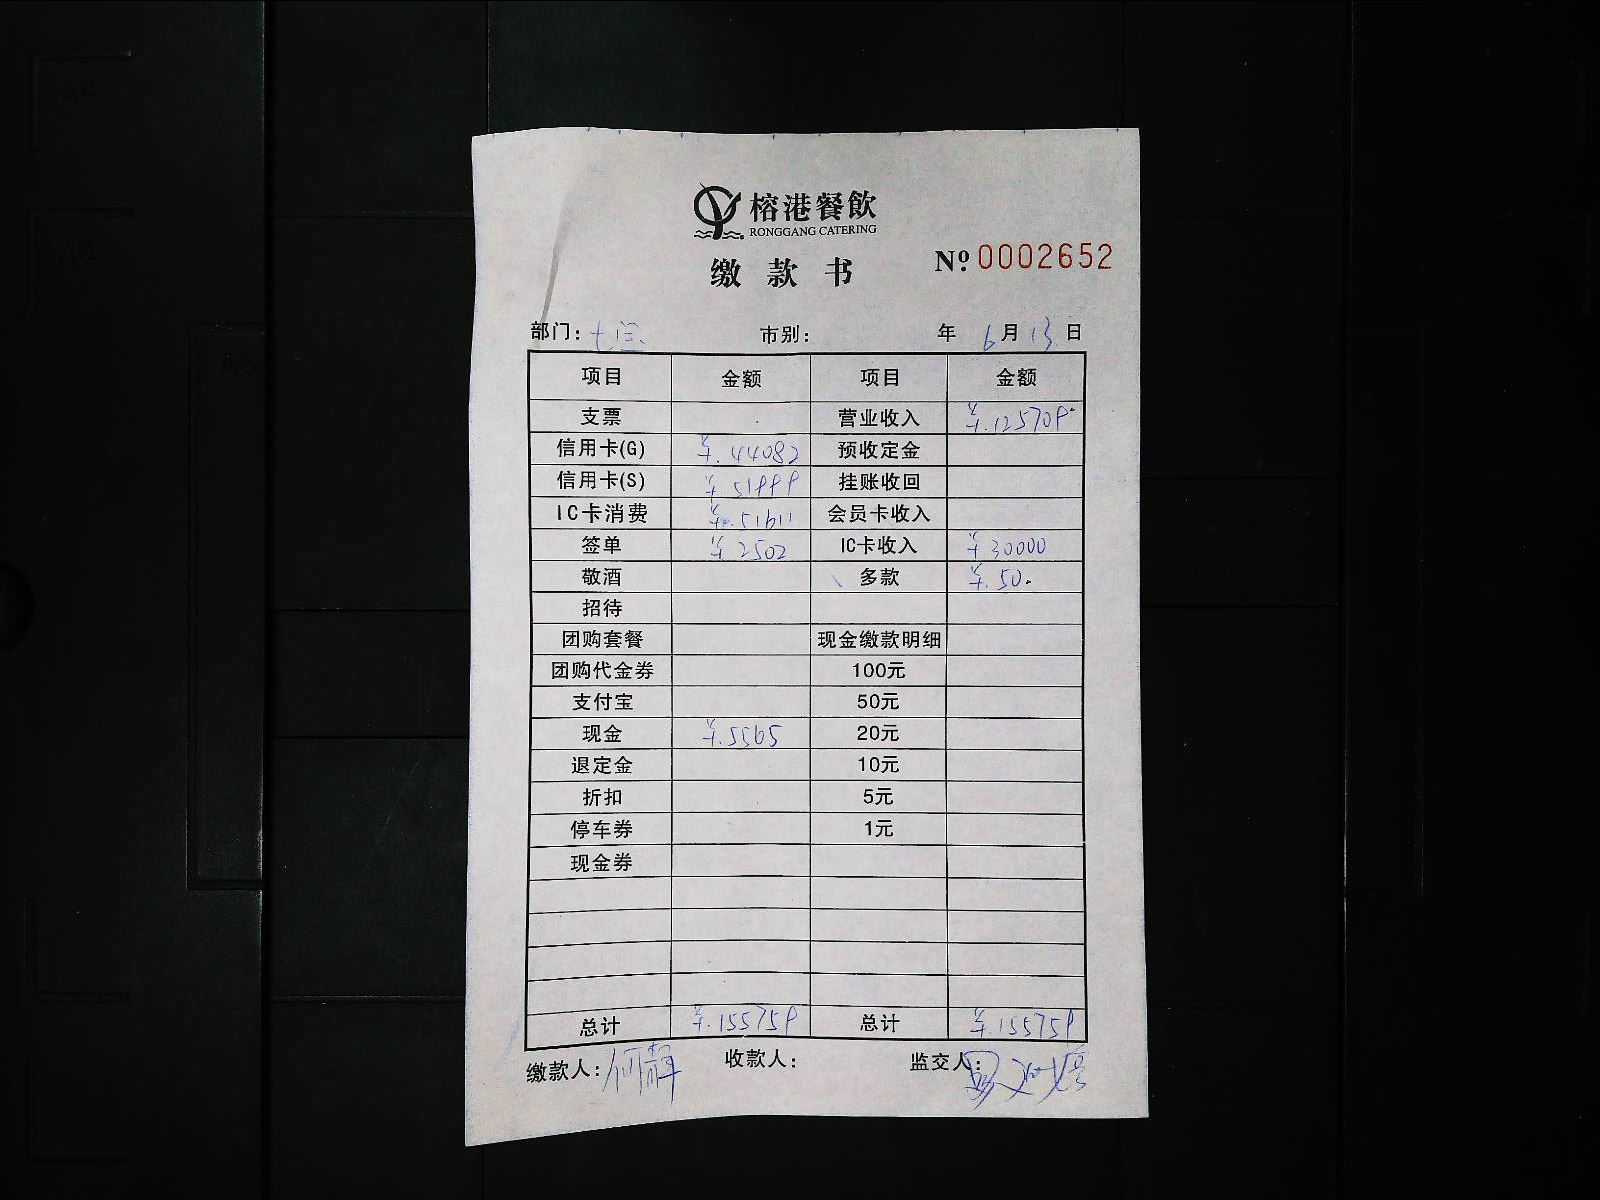 榕港餐飲
RONGGANG CATERING
缴款书
Nº 0002652
部门: 市别: 年 6月13日
项目 金额 项目 金额
支票 营业收入 ¥.125709
信用卡(G) ¥.44082 预收定金
信用卡(S) ¥51999 挂账收回
IC卡消费 ¥.51611 会员卡收入
签单 ¥2502 IC卡收入 ¥30000
敬酒 多款 ¥.50.
招待
团购套餐 现金缴款明细
团购代金券 100元
支付宝 50元
现金 ¥.5565 20元
退定金 10元
折扣 5元
停车券 1元
现金券
总计 ¥.155759 总计 ¥.155759
缴款人:何静 收款人: 监交人: